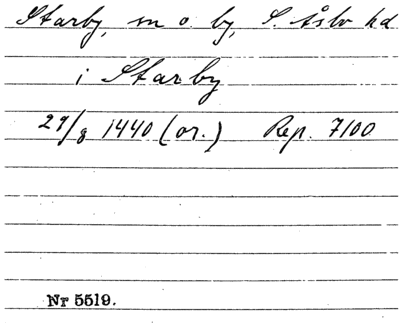 Starby, sn o. by, S. Åsbo hd
i Starby
27/8 1440 (or.) Rep. 7100
Nr 5519.